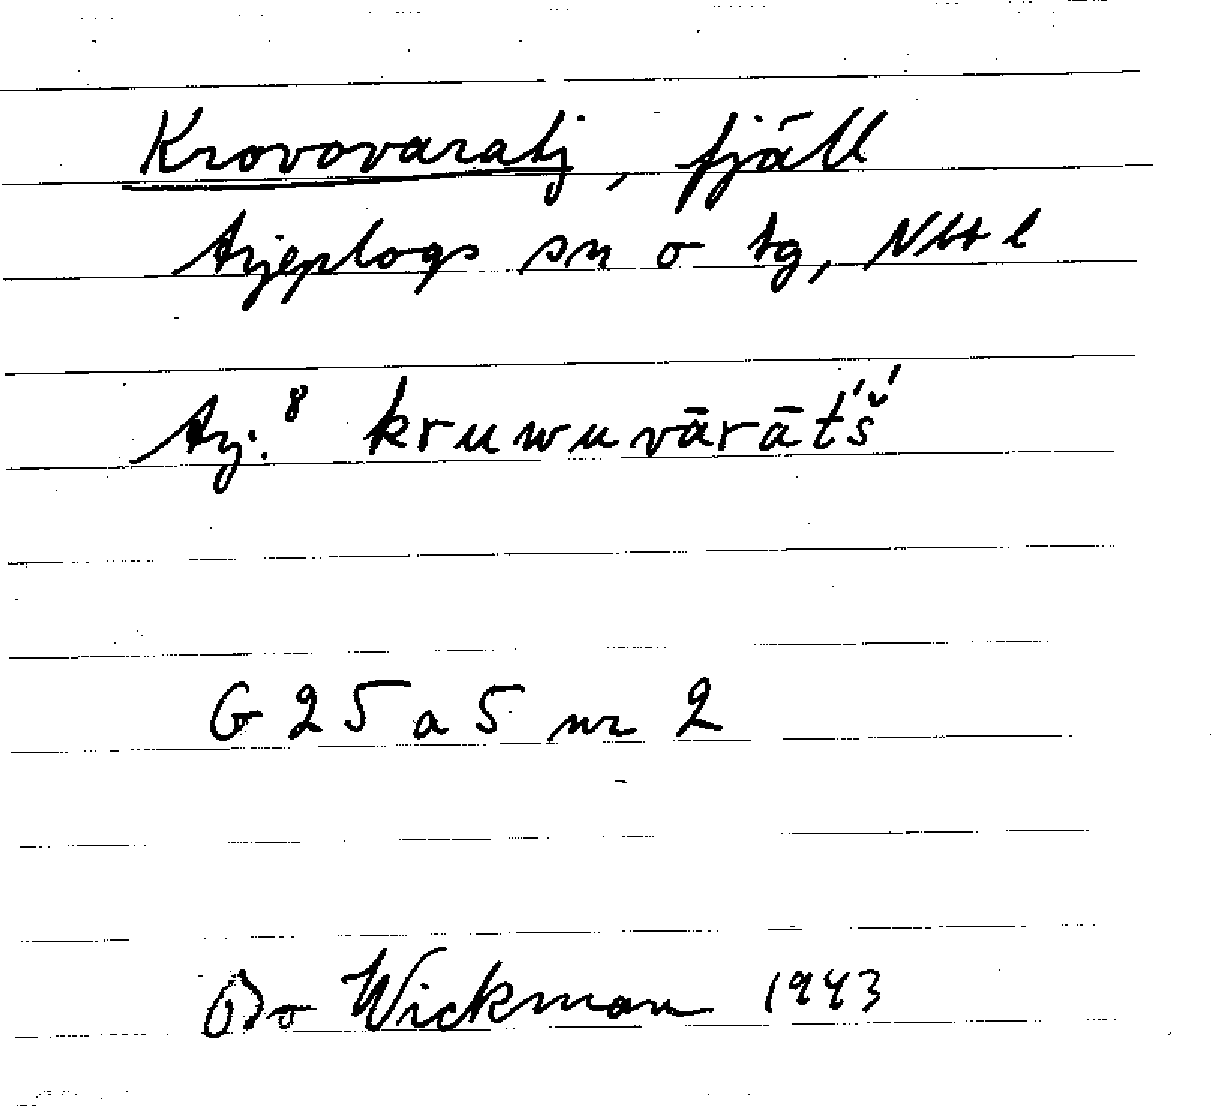 Krovovaratj, fjäll
Arjeplogs sn o tg, Nbtl
Arj:⁸ kruwuvārāt́š́
G 25 a 5 nr 2
Bo Wickman 1943